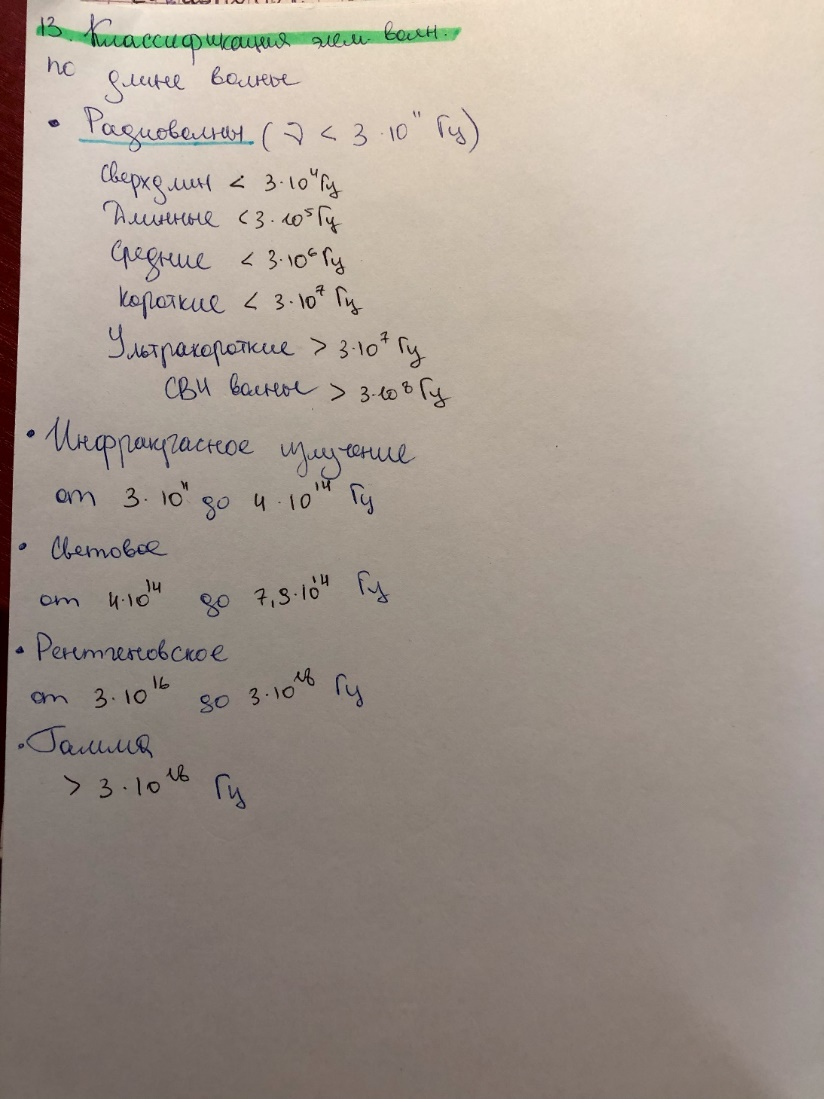 13. Классификация элм. волн.
по длине волны
• Радиоволны (ν < 3·10¹¹ Гц)
Сверхдлин < 3·10⁴ Гц
Длинные < 3·10⁵ Гц
Средние < 3·10⁶ Гц
Короткие < 3·10⁷ Гц
Ультракороткие > 3·10⁷ Гц
СВЧ волны > 3·10⁸ Гц
• Инфракрасное излучение
от 3·10¹¹ до 4·10¹⁴ Гц
• Световое
от 4·10¹⁴ до 7,5·10¹⁴ Гц
• Рентгеновское
от 3·10¹⁶ до 3·10¹⁸ Гц
• Гамма
> 3·10¹⁸ Гц